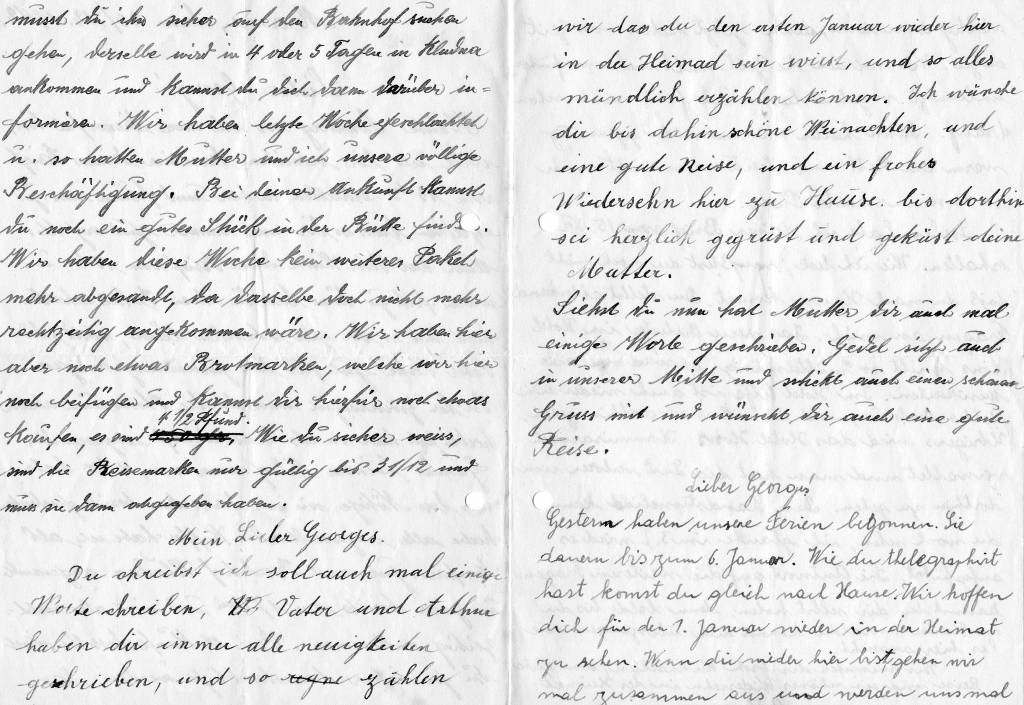 musst du ihn sicher auf den Bahnhof suchen
gehen, derselbe wird in 4 oder 5 Tagen in Kludna
ankommen und kannst du dich dann darüber in=
formieren. Wir haben letzte Woche geschlachtet
u. so hatten Mutter und ich unsere völlige
Beschäftigung. Bei deiner Ankunft kannst
du noch ein gutes Stück in der Bütte finden.
Wir haben diese Woche kein weiteres Paket
mehr abgesandt, da dasselbe doch nicht mehr
rechtzeitig angekommen wäre. Wir haben hier
aber noch etwas Brotmarken, welche wir hier
noch beifügen und kannst dir hierfür noch etwas
4 1/2 Pfund.
kaufen, es sind Wie du sicher weiss,
sind die Reisemarken nur gültig bis 31/12 und
muss sie dann abgegeben haben.
Mein Lieber Georges.
Du chreibst ich soll auch mal einige
Worte chreiben, Vater und Arthur
haben dir immer alle neuigkeiten
geschrieben, und so zählen
wir das du den ersten Januar wieder hier
in der Heimad sein wirst, und so alles
mündlich erzählen können. Ich wünche
dir bis dahin schöne Weinachten, und
eine gute Reise, und ein frohes
Wiedersehn hier zu Hause. bis dorthin
sei herzlich gegrüst und geküst deine
Mutter.
Siehst du nun hat Mutter dir auch mal
einige Worte geschrieben. Gedel sitzt auch
in unserer Mitte und schickt auch einen schönen
Gruss mit und wünscht dir auch eine gute
Reise.
Lieber Georges
Gestern haben unsere Ferien begonnen. Sie
dauern bis zum 6. Januar. Wie du thelegraphirt
hast komst du gleich nach Hause. Wir hoffen
dich für den 1. Januar wieder in der Heimat
zu sehen. Wenn du wieder hier bist gehen wir
mal zusammen aus und werden uns mal